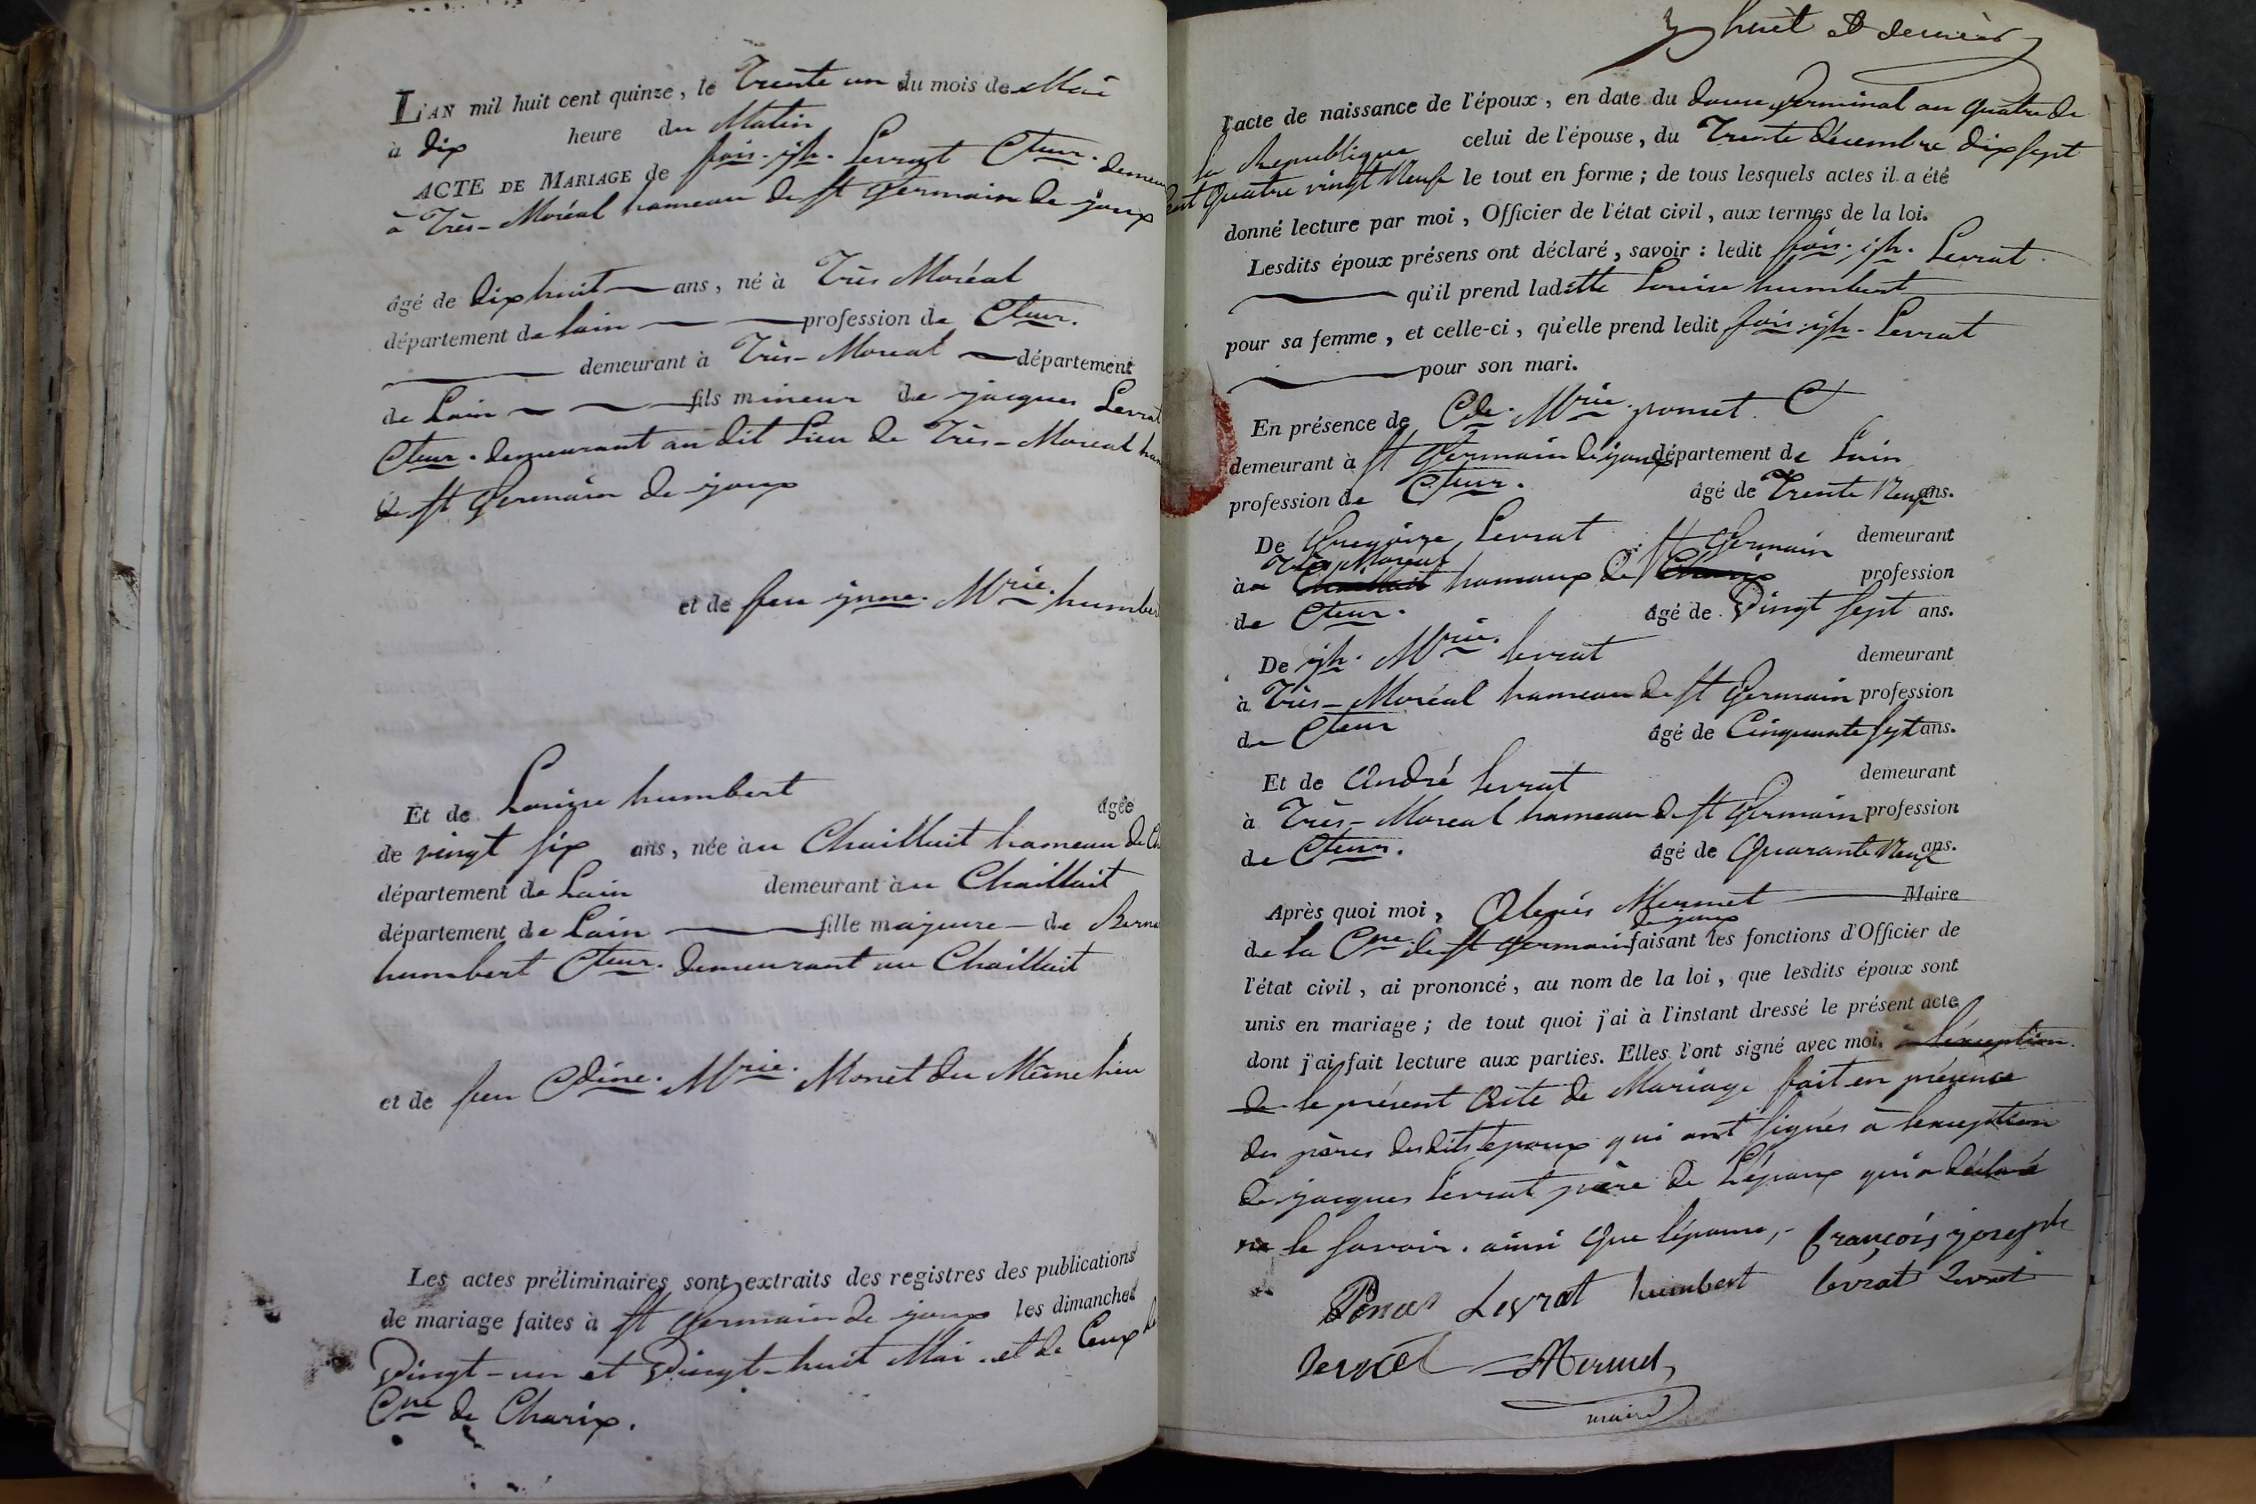 L'AN mil huit cent quinze, le Trente un du mois de Mai
à dix heure du Matin
ACTE DE MARIAGE de fois. jh. Levrat Cteur. demeu
à Très-Moréal hameau de st Germain de joux
âgé de dix huit ans, né à Très Moréal
département de Lain profession de Cteur.
demeurant à Très-Moreal département
de Lain fils mineur de jacques Levrat
Cteur. demeurant au dit Lieu de Très-Moreal ham
de st Germain de joux
et de feu Mrie. humber
Et de Louise humbert âgée
de vingt six ans, née au Chaillait hameau de Ch
département de Lain demeurant au Chaillait
département de Lain fille majeure de Berna
humbert Cteur. demeurant au Chaillait
et de feu Cdine. Mrie. Monet du Même lieu
Les actes préliminaires sont extraits des registres des publications
de mariage faites à st Germain de joux les dimanches
Vingt-un et Vingt-huit Mai. et de Ceux de
Cne de Charix.
huit et dernier
l'acte de naissance de l'époux, en date du douze Germinal an quatre de
la Republique celui de l'épouse, du Trente décembre dix sept
cent quatre vingt Neuf le tout en forme; de tous lesquels actes il a été
donné lecture par moi, Officier de l'état civil, aux termes de la loi.
Lesdits époux présens ont déclaré, savoir: ledit fois. jh. Levrat
qu'il prend ladette Louise humbert
pour sa femme, et celle-ci, qu'elle prend ledit fois. jh. Levrat
pour son mari.
En présence de Cde. Mrie. ponset
demeurant à st Germain de joux département de Lain
profession de Cteur. âgé de Trente Neuf ans.
De Gregoire Levrat demeurant
Très Moréal st Germain
au Chaillait hameaux de Charix profession
de Cteur. âgé de Vingt sept ans.
De jh. Mrie. levrat demeurant
à Très-Moréal hameau de st Germain profession
de Cteur âgé de Cinquante sept ans.
Et de André levrat demeurant
à Très-Moreal hameau de st Germain profession
de Cteur. âgé de Quarante Neuf ans.
Après quoi moi, Alexis Mermet Maire
de joux
de la Cne. de st Germain faisant les fonctions d'Officier de
l'état civil, ai prononcé, au nom de la loi, que lesdits époux sont
unis en mariage; de tout quoi j'ai à l'instant dressé le présent acte
dont j'ai fait lecture aux parties. Elles l'ont signé avec moi. à l'exception
de le présent Acte de Mariage fait en présence
des pères desdits époux qui ont signés à l'exception
de jacques Levrat père de L'époux qui a déclaré
ne le savoir. ainsi que l'épouse,- françois joseph
Levrat humbert levrat Levrat
Mermet
maire